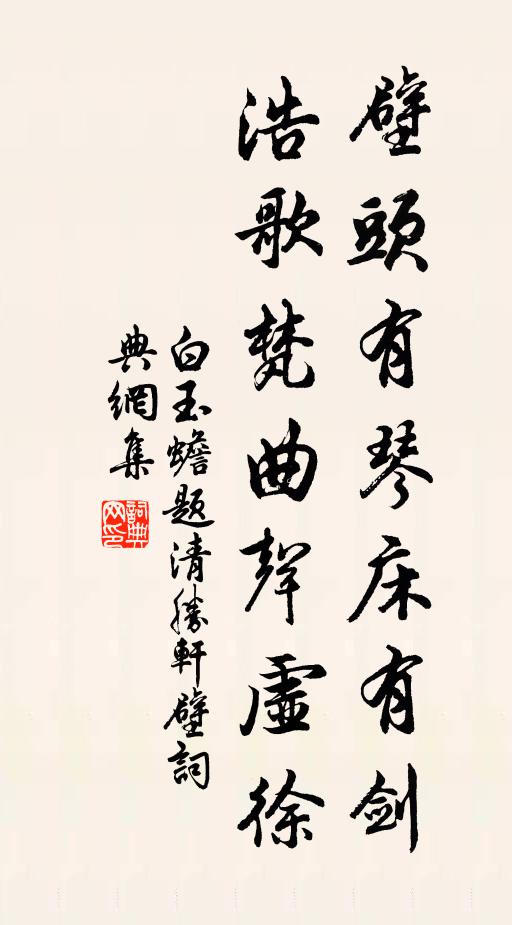 壁頭有琴床有劍
浩歌梵曲聲虛徐
白玉蟾題清勝軒壁詞
典網集
詞典網印